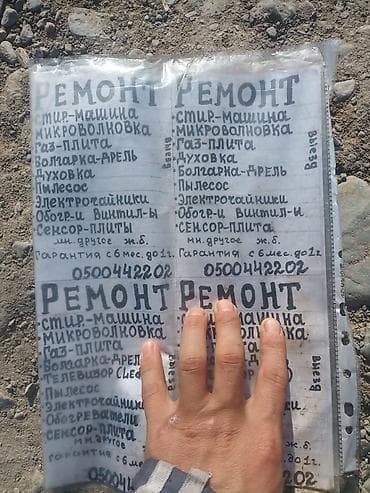 РЕМОНТ
СТИР-МАШИНА
МИКРОВОЛНОВКА
ГАЗ-ПЛИТА
БОЛГАРКА-ДРЕЛЬ
ДУХОВКА
ПЫЛЕСОС
ЭЛЕКТРОЧАЙНИКИ
ОБОГР-И ВИНТИЛ-Ы
СЕНСОР-ПЛИТЫ
МН. ДРУГОЕ Ж.Б.
ГАРАНТИЯ С 6 МЕС. ДО 1 г.
0500442202
РЕМОНТ
СТИР-МАШИНА
МИКРОВОЛНОВКА
ГАЗ-ПЛИТА
ДУХОВКА
БОЛГАРКА-ДРЕЛЬ
ПЫЛЕСОС
ЭЛЕКТРОЧАЙНИКИ
ОБОГР-И ВИНТИЛ-Ы
СЕНСОР-ПЛИТА
МН. ДРУГОЕ Ж.Б.
ГАРАНТИЯ С 6 МЕС. ДО 1 г.
Выезд
0500442202
РЕМОНТ
СТИР-МАШИНА
МИКРОВОЛНОВКА
ГАЗ-ПЛИТА
БОЛГАРКА-ДРЕЛ
ТЕЛЕВИЗОР (LE
ПЫЛЕСОС
ЭЛЕКТРОЧАЙНИК
ОБОГРЕВАТЕЛИ
СЕНСОР-ПЛИТА
МН.ДРУГОЕ
ГАРАНТИЯ С 6 МЕ
05004
РЕМОНТ
МАШИНА
Ж.Б.
ДО 1 г.
Выезд
202